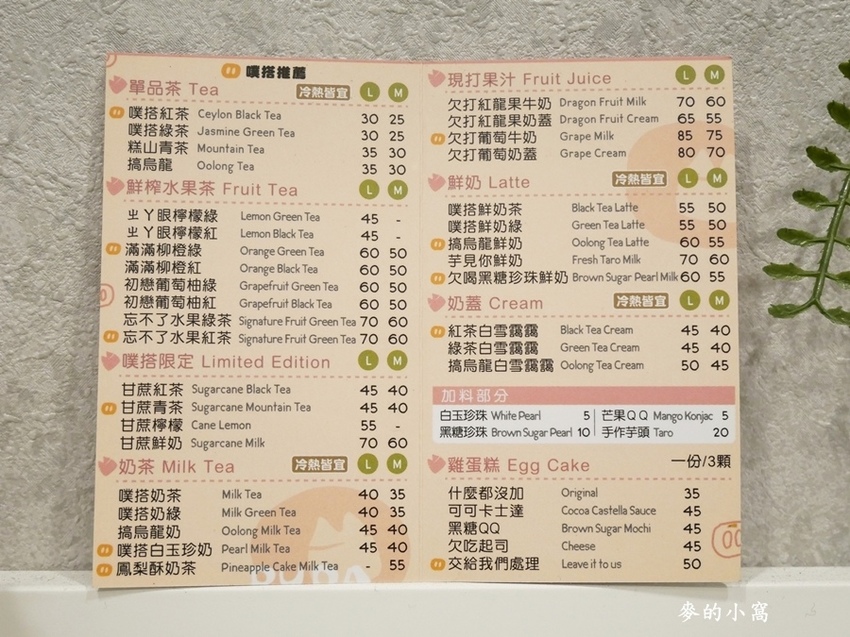 噗搭推薦
單品茶 Tea 冷熱皆宜 L M
噗搭紅茶 Ceylon Black Tea 30 25
噗搭綠茶 Jasmine Green Tea 30 25
糕山青茶 Mountain Tea 35 30
搞烏龍 Oolong Tea 35 30
鮮榨水果茶 Fruit Tea L M
ㄓㄚ眼檸檬綠 Lemon Green Tea 45 -
ㄓㄚ眼檸檬紅 Lemon Black Tea 45 -
滿滿柳橙綠 Orange Green Tea 60 50
滿滿柳橙紅 Orange Black Tea 60 50
初戀葡萄柚綠 Grapefruit Green Tea 60 50
初戀葡萄柚紅 Grapefruit Black Tea 60 50
忘不了水果綠茶 Signature Fruit Green Tea 70 60
忘不了水果紅茶 Signature Fruit Green Tea 70 60
噗搭限定 Limited Edition L M
甘蔗紅茶 Sugarcane Black Tea 45 40
甘蔗青茶 Sugarcane Mountain Tea 45 40
甘蔗檸檬 Cane Lemon 55 -
甘蔗鮮奶 Sugarcane Milk 70 60
奶茶 Milk Tea 冷熱皆宜 L M
噗搭奶茶 Milk Tea 40 35
噗搭奶綠 Milk Green Tea 40 35
搞烏龍奶 Oolong Milk Tea 45 40
噗搭白玉珍奶 Pearl Milk Tea 45 40
鳳梨酥奶茶 Pineapple Cake Milk Tea - 55
現打果汁 Fruit Juice L M
欠打紅龍果牛奶 Dragon Fruit Milk 70 60
欠打紅龍果奶蓋 Dragon Fruit Cream 65 55
欠打葡萄牛奶 Grape Milk 85 75
欠打葡萄奶蓋 Grape Cream 80 70
鮮奶 Latte 冷熱皆宜 L M
噗搭鮮奶茶 Black Tea Latte 55 50
噗搭鮮奶綠 Green Tea Latte 55 50
搞烏龍鮮奶 Oolong Tea Latte 60 55
芋見你鮮奶 Fresh Taro Milk 70 60
欠喝黑糖珍珠鮮奶 Brown Sugar Pearl Milk 60 55
奶蓋 Cream 冷熱皆宜 L M
紅茶白雪靄靄 Black Tea Cream 45 40
綠茶白雪靄靄 Green Tea Cream 45 40
搞烏龍白雪靄靄 Oolong Tea Cream 50 45
加料部分
白玉珍珠 White Pearl 5 芒果QQ Mango Konjac 5
黑糖珍珠 Brown Sugar Pearl 10 手作芋頭 Taro 20
雞蛋糕 Egg Cake 一份/3顆
什麼都沒加 Original 35
可可卡士達 Cocoa Castella Sauce 45
黑糖QQ Brown Sugar Mochi 45
欠吃起司 Cheese 45
交給我們處理 Leave it to us 50
麥的小窩